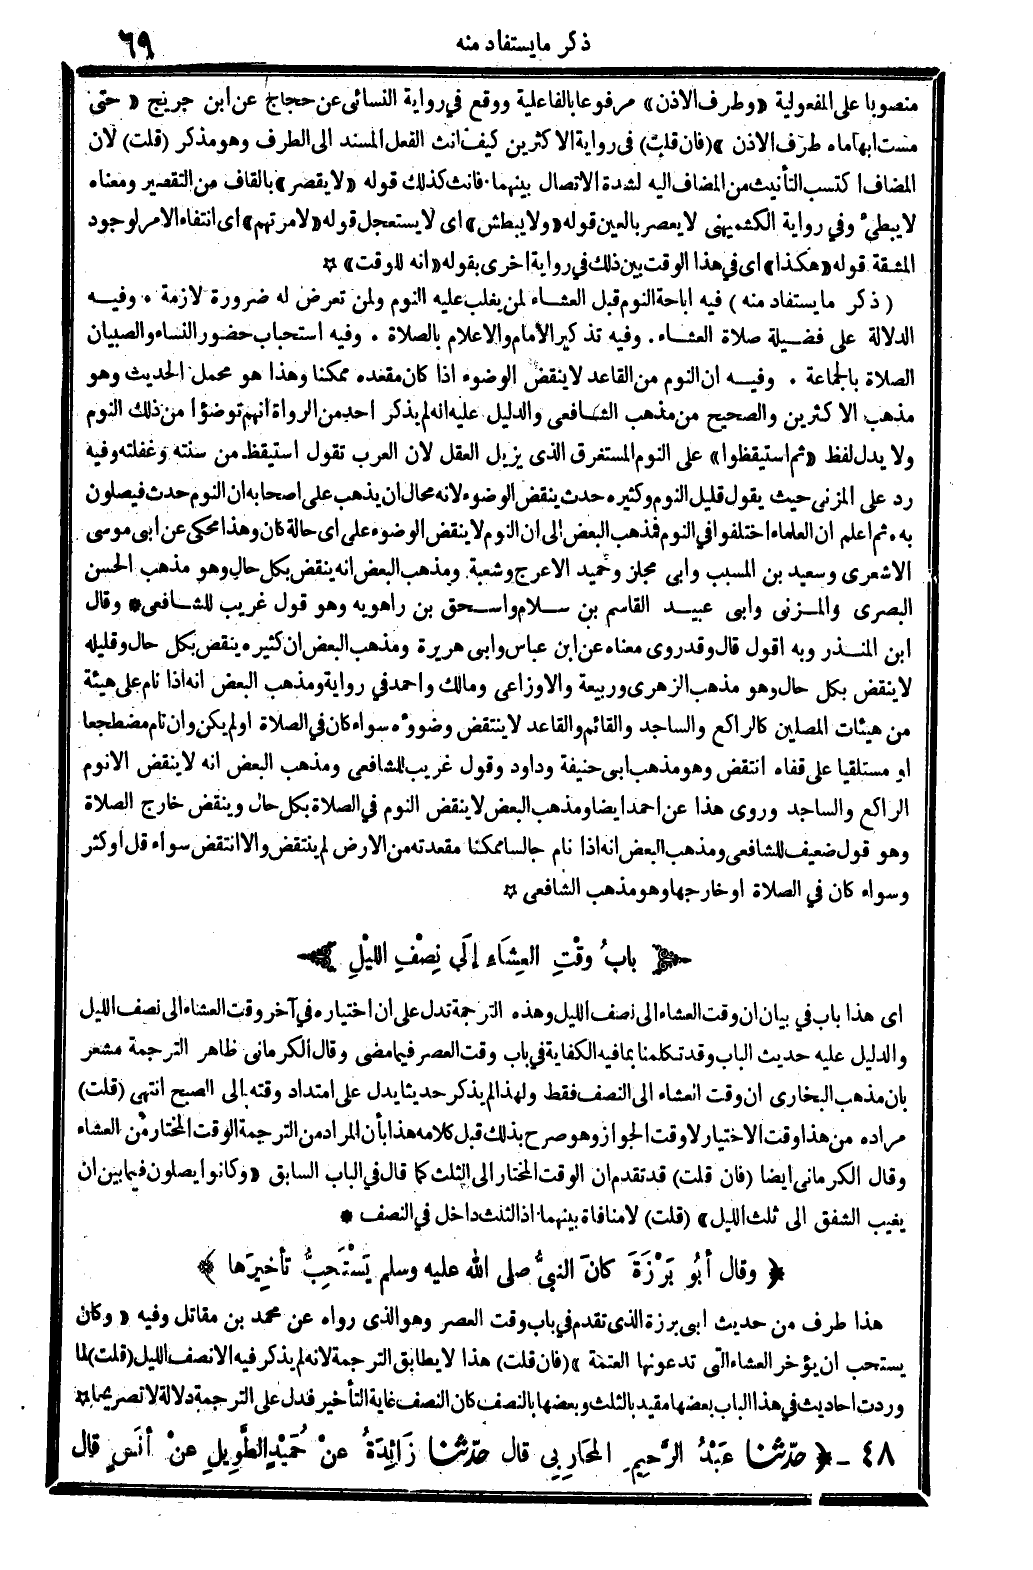 ذكر مايستفاد منه
٦٩
منصوبا على المفعولية «وطرف الاذن» مرفوعا بالفاعلية ووقع في رواية النسائى عن حجاج عن ابن جريج « حتى
مست ابهاماه طرف الاذن »(فان قلت) فى رواية الاكثرين كيف انث الفعل المسند الى الطرف وهو مذكر (قلت) لان
المضاف اكتسب التأنيث من المضاف اليه لشدة الاتصال بينهما فانث كذلك قوله «لا يقصر» بالقاف من التقصير ومعناه
لا يبطئ وفي رواية الكشميهنى لا يعصر بالعين قوله «ولا يبطش» اى لا يستعجل قوله «لامرتهم» اى انتفاء الامر لوجود
المشقة قوله «هكذا» اى في هذا الوقت بين ذلك في رواية اخرى بقوله «انه للوقت» ☆
( ذكر ما يستفاد منه ) فيه اباحة النوم قبل العشاء لمن يغلب عليه النوم ولمن تعرض له ضرورة لازمة ٠ وفيه
الدلالة على فضيلة صلاة العشاء . وفيه تذكير الأمام والاعلام بالصلاة ٠ وفيه استحباب حضور النساء والصبيان
الصلاة بالجماعة ٠ وفيه ان النوم من القاعد لا ينقض الوضوء اذا كان مقعده ممكنا وهذا هو محمل الحديث وهو
مذهب الاكثرين والصحيح من مذهب الشافعى والدليل عليه انه لم يذكر احد من الرواة انهم توضؤا من ذلك النوم
ولا يدل لفظ «ثم استيقظوا» على النوم المستغرق الذى يزيل العقل لان العرب تقول استيقظ من سنته وغفلته وفيه
رد على المزنى حيث يقول قليل النوم وكثيره حدث ينقض الوضوء لانه محال ان يذهب على اصحابه ان النوم حدث فيصلون
به ٠ ثم اعلم ان العلماء اختلفوا في النوم فمذهب البعض الى ان النوم لا ينقض الوضوء على اى حالة كان وهذا محكى عن ابى موسى
الاشعرى وسعيد بن المسيب وابى مجلز وحميد الاعرج وشعبة ومذهب البعض انه ينقض بكل حال وهو مذهب الحسن
البصرى والمزنى وابى عبيد القاسم بن سلام واسحق بن راهويه وهو قول غريب للشافعى * وقال
ابن المنذر وبه اقول قال وقد روى معناه عن ابن عباس وابى هريرة ومذهب البعض ان كثيره ينقض بكل حال وقليله
لا ينقض بكل حال وهو مذهب الزهرى وربيعة والاوزاعى ومالك واحمد في رواية ومذهب البعض انه اذا نام على هيئة
من هيئات المصلين كالراكع والساجد والقائم والقاعد لا ينتقض وضوءه سواء كان في الصلاة او لم يكن وان نام مضطجعا
او مستلقيا على قفاه انتقض وهو مذهب ابى حنيفة وداود وقول غريب للشافعى ومذهب البعض انه لا ينقض الا نوم
الراكع والساجد وروى هذا عن احمد ايضا ومذهب البعض لا ينقض النوم في الصلاة بكل حال وينقض خارج الصلاة
وهو قول ضعيف للشافعى ومذهب البعض انه اذا نام جالسا ممكنا مقعدته من الارض لم ينتقض والا انتقض سواء قل أو كثر
وسواء كان في الصلاة او خارجها وهو مذهب الشافعى ☆
بابُ وقْتِ العِشَاءِ إلَى نِصْفِ الليْلِ
اى هذا باب في بيان ان وقت العشاء الى نصف الليل وهذه الترجمة تدل على ان اختياره في آخر وقت العشاء الى نصف الليل
والدليل عليه حديث الباب وقد تكلمنا بما فيه الكفاية في باب وقت العصر فيما مضى وقال الكرمانى ظاهر الترجمة مشعر
بان مذهب البخارى ان وقت العشاء الى النصف فقط ولهذا لم يذكر حديثا يدل على امتداد وقته الى الصبح انتهى (قلت)
مراده من هذا وقت الاختيار لا وقت الجواز وهو صرح بذلك قبل كلامه هذا بأن المراد من الترجمة الوقت المختار من العشاء
وقال الكرمانى ايضا (فان قلت) قد تقدم ان الوقت المختار الى الثلث كما قال في الباب السابق «وكانوا يصلون فيما بين ان
يغيب الشفق الى ثلث الليل» (قلت) لا منافاة بينهما اذ الثلث داخل في النصف *
﴿ وقال أبُو بَرْزَةَ كانَ النبىُّ صلى الله عليه وسلم يَسْتَحِبُّ تأخِيرَها ﴾
هذا طرف من حديث ابى برزة الذى تقدم في باب وقت العصر وهو الذى رواه عن محمد بن مقاتل وفيه « وكان
يستحب ان يؤخر العشاء التى تدعونها العتمة »(فان قلت) هذا لا يطابق الترجمة لانه لم يذكر فيه الا نصف الليل (قلت) لما
وردت احاديث في هذا الباب بعضها مقيد بالثلث وبعضها بالنصف كان النصف غاية التأخير فدل على الترجمة دلالة لا تصريحا ☆
٤٨ - ﴿ حدّثنا عَبْدُ الرَّحِيمِ المحَارِبِى قال حدّثنا زَائِدَةُ عنْ حُمَيْدٍ الطَّوِيلِ عنْ أنَسٍ قال